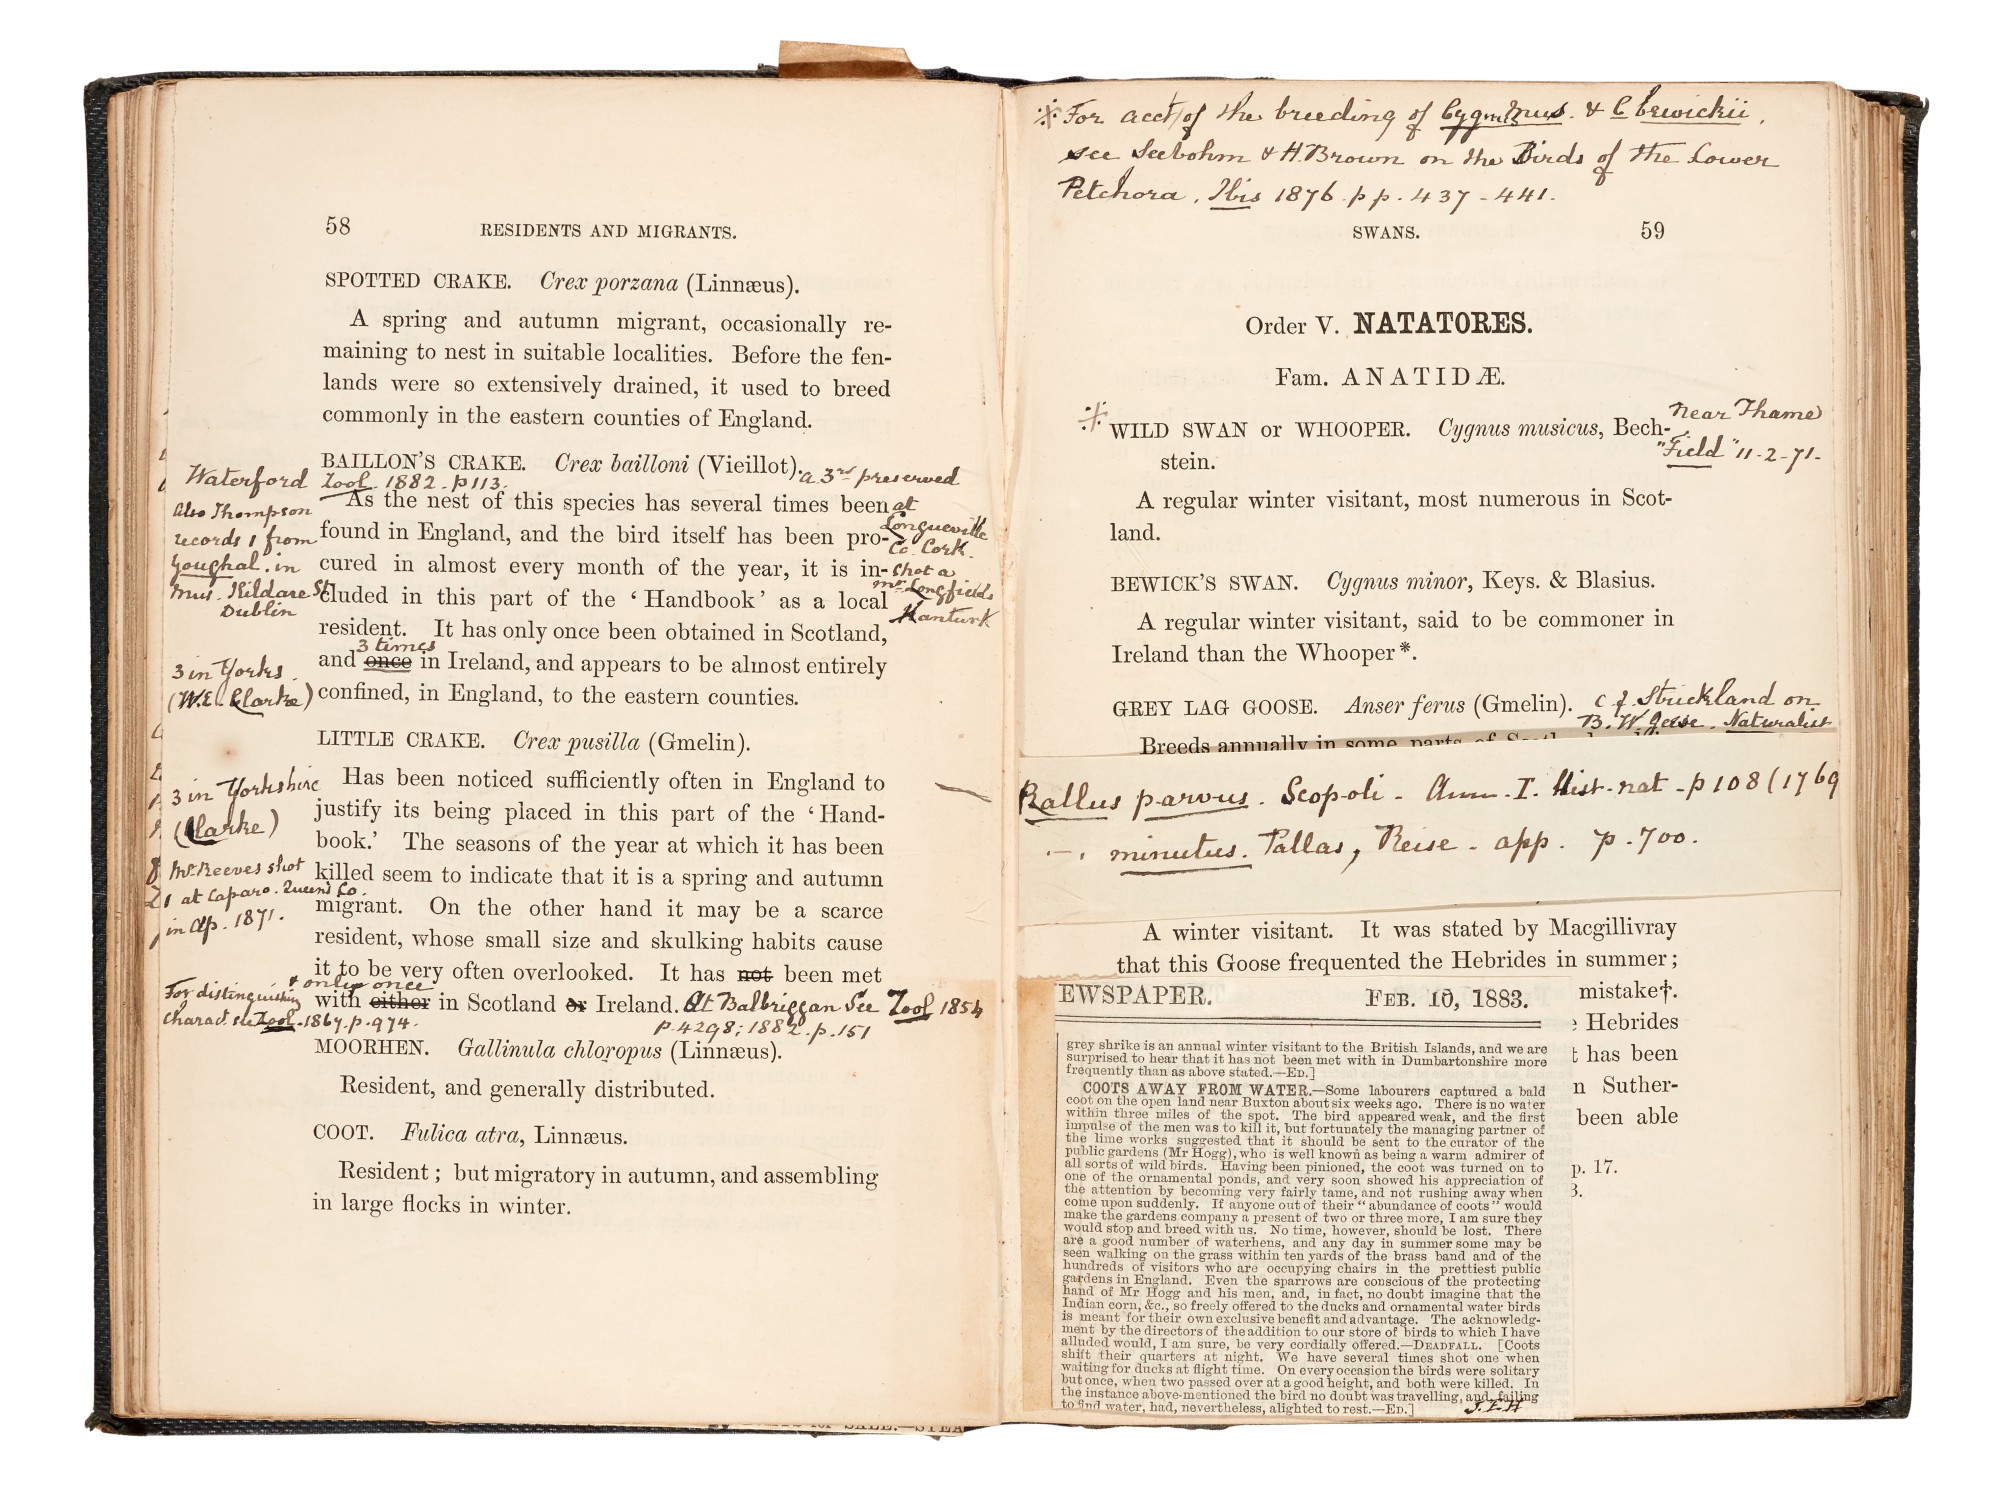 58 RESIDENTS AND MIGRANTS.
SPOTTED CRAKE. Crex porzana (Linnæus).
A spring and autumn migrant, occasionally re-
maining to nest in suitable localities. Before the fen-
lands were so extensively drained, it used to breed
commonly in the eastern counties of England.
BAILLON'S CRAKE. Crex bailloni (Vieillot).
a 3rd preserved
at
Longueville
Co. Cork.
shot a
Mr. Longfields
Kanturk
Waterford Zool. 1882. p113.
Also Thompson
records 1 from
Youghal. in
Mus. Kildare St
Dublin
As the nest of this species has several times been
found in England, and the bird itself has been pro-
cured in almost every month of the year, it is in-
cluded in this part of the ‘Handbook’ as a local
resident. It has only once been obtained in Scotland,
3 times
and once in Ireland, and appears to be almost entirely
confined, in England, to the eastern counties.
3 in Yorks.
(W.E. Clarke)
LITTLE CRAKE. Crex pusilla (Gmelin).
Has been noticed sufficiently often in England to
justify its being placed in this part of the ‘Hand-
book.’ The seasons of the year at which it has been
killed seem to indicate that it is a spring and autumn
migrant. On the other hand it may be a scarce
resident, whose small size and skulking habits cause
it to be very often overlooked. It has not been met
& only once
with either in Scotland or Ireland. At Balbriggan See Zool 1854
p. 4298; 1882. p. 151
3 in Yorkshire
(Clarke)
Mr. Reeves shot
1 at Caparo. Queens Co.
in Ap. 1871.
For distinguishing
charact. see Zool. 1867. p. 974.
MOORHEN. Gallinula chloropus (Linnæus).
Resident, and generally distributed.
COOT. Fulica atra, Linnæus.
Resident; but migratory in autumn, and assembling
in large flocks in winter.
SALE.—STEA
※ For acct of the breeding of Cygnus. & C bewickii,
see Seebohm & H. Brown on the Birds of the Lower
Petchora. Ibis 1876. pp. 437-441.
SWANS. 59
Order V. NATATORES.
Fam. ANATIDÆ.
※ WILD SWAN or WHOOPER. Cygnus musicus, Bech-
stein.
near Thame
"Field" 11-2-71.
A regular winter visitant, most numerous in Scot-
land.
BEWICK'S SWAN. Cygnus minor, Keys. & Blasius.
A regular winter visitant, said to be commoner in
Ireland than the Whooper*.
GREY LAG GOOSE. Anser ferus (Gmelin).
cf. Strickland on
B. W. Geese. Naturalist
Breeds annually in some parts of
Rallus parvus. Scopoli - Ann. I. Hist. nat - p 108 (1769
—. minutus. Pallas, Reise. app. p. 700.
A winter visitant. It was stated by Macgillivray
that this Goose frequented the Hebrides in summer;
mistake†.
Hebrides
t has been
n Suther-
been able
p. 17.
3.
EWSPAPER. FEB. 10, 1883.
grey shrike is an annual winter visitant to the British Islands, and we are
surprised to hear that it has not been met with in Dumbartonshire more
frequently than as above stated.—ED.]
COOTS AWAY FROM WATER.—Some labourers captured a bald
coot on the open land near Buxton about six weeks ago. There is no water
within three miles of the spot. The bird appeared weak, and the first
impulse of the men was to kill it, but fortunately the managing partner of
the lime works suggested that it should be sent to the curator of the
public gardens (Mr Hogg), who is well known as being a warm admirer of
all sorts of wild birds. Having been pinioned, the coot was turned on to
one of the ornamental ponds, and very soon showed his appreciation of
the attention by becoming very fairly tame, and not rushing away when
come upon suddenly. If anyone out of their "abundance of coots" would
make the gardens company a present of two or three more, I am sure they
would stop and breed with us. No time, however, should be lost. There
are a good number of waterhens, and any day in summer some may be
seen walking on the grass within ten yards of the brass band and of the
hundreds of visitors who are occupying chairs in the prettiest public
gardens in England. Even the sparrows are conscious of the protecting
hand of Mr Hogg and his men, and, in fact, no doubt imagine that the
Indian corn, &c., so freely offered to the ducks and ornamental water birds
is meant for their own exclusive benefit and advantage. The acknowledg-
ment by the directors of the addition to our store of birds to which I have
alluded would, I am sure, be very cordially offered.—DEADFALL. [Coots
shift their quarters at night. We have several times shot one when
waiting for ducks at flight time. On every occasion the birds were solitary
but once, when two passed over at a good height, and both were killed. In
the instance above-mentioned the bird no doubt was travelling, and, failing
to find water, had, nevertheless, alighted to rest.—ED.]
J. E. H